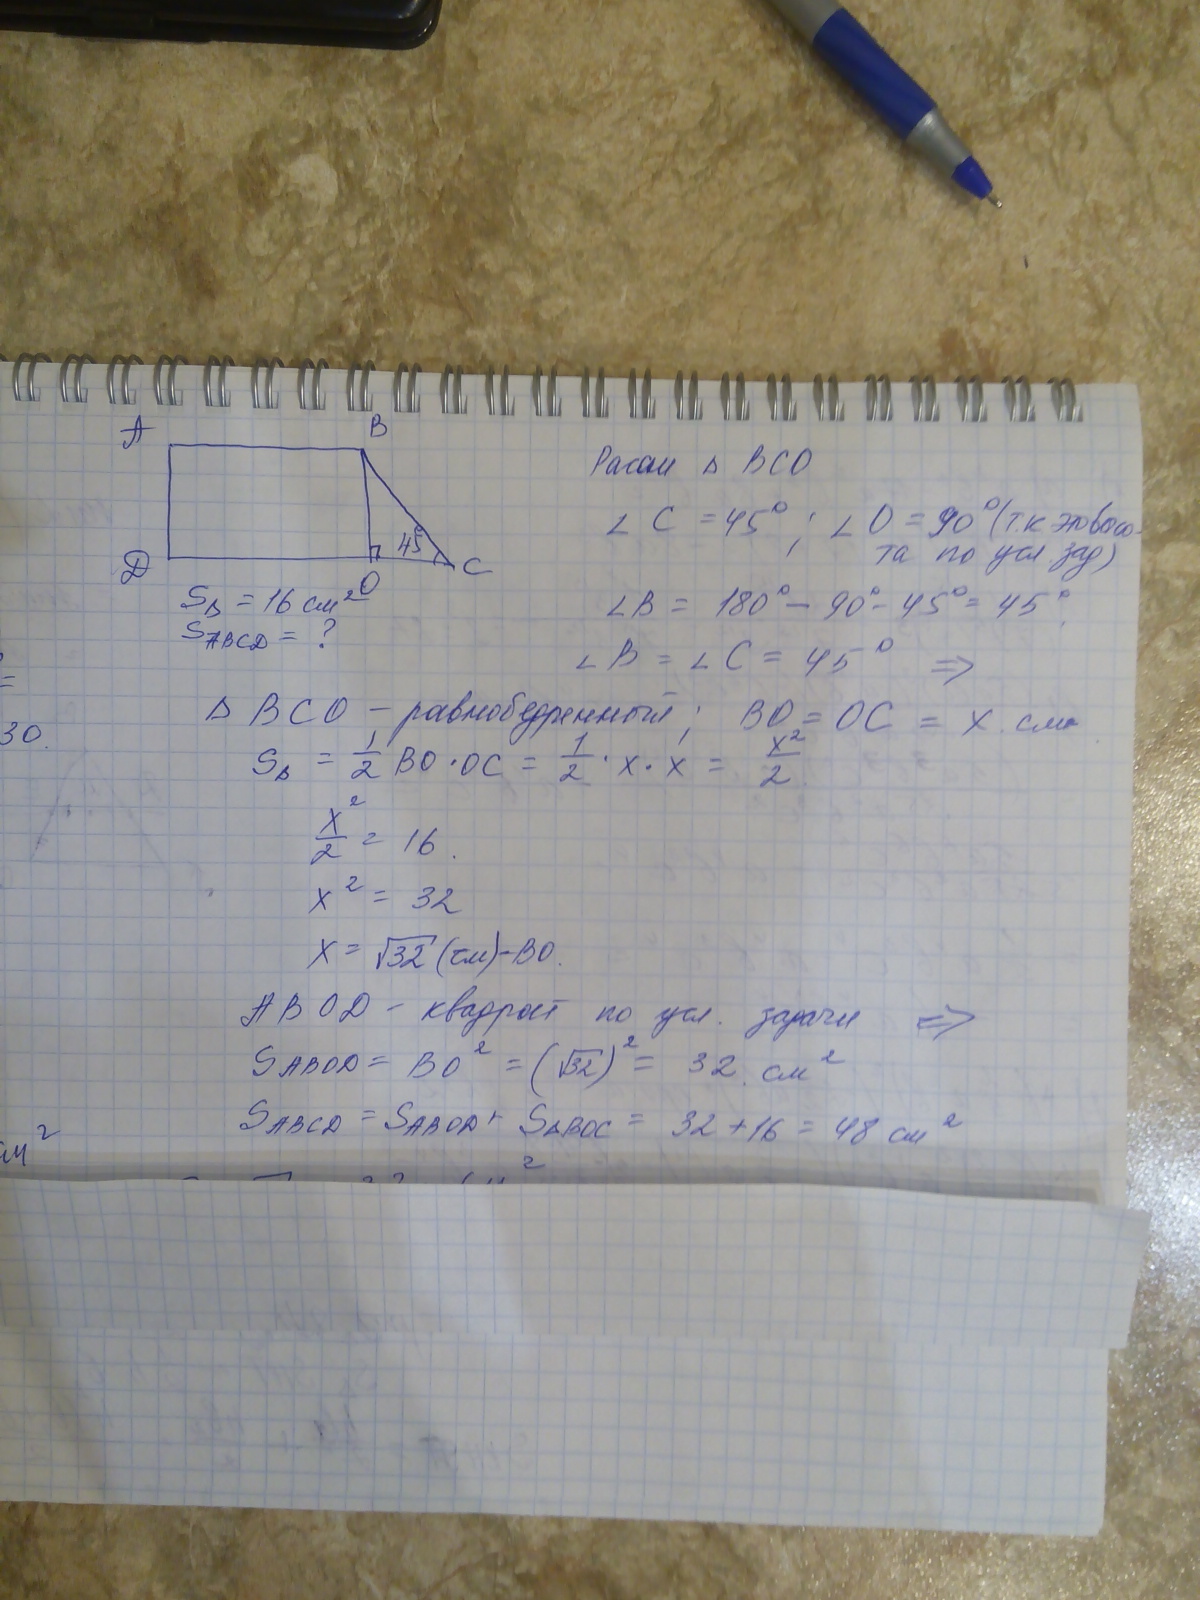 A
B
45°
D
O
C
S△ = 16 см²
SABCD = ?
Рассм △ BCO
∠ C = 45° ; ∠ O = 90° (т.к это высо-
та по усл зад)
∠B = 180° - 90° - 45° = 45°
∠ B = ∠ C = 45° ⇒
△ BCO - равнобедренный ; BO = OC = x см
S△ = 1/2 BO · OC = 1/2 · x · x = x²/2
x²/2 = 16.
x² = 32
x = √32 (см) - BO.
ABOD - квадрат по усл. задачи ⇒
SABOD = BO² = (√32)² = 32 см²
SABCD = SABOD + S△BOC = 32 + 16 = 48 см²
=
30.
см²